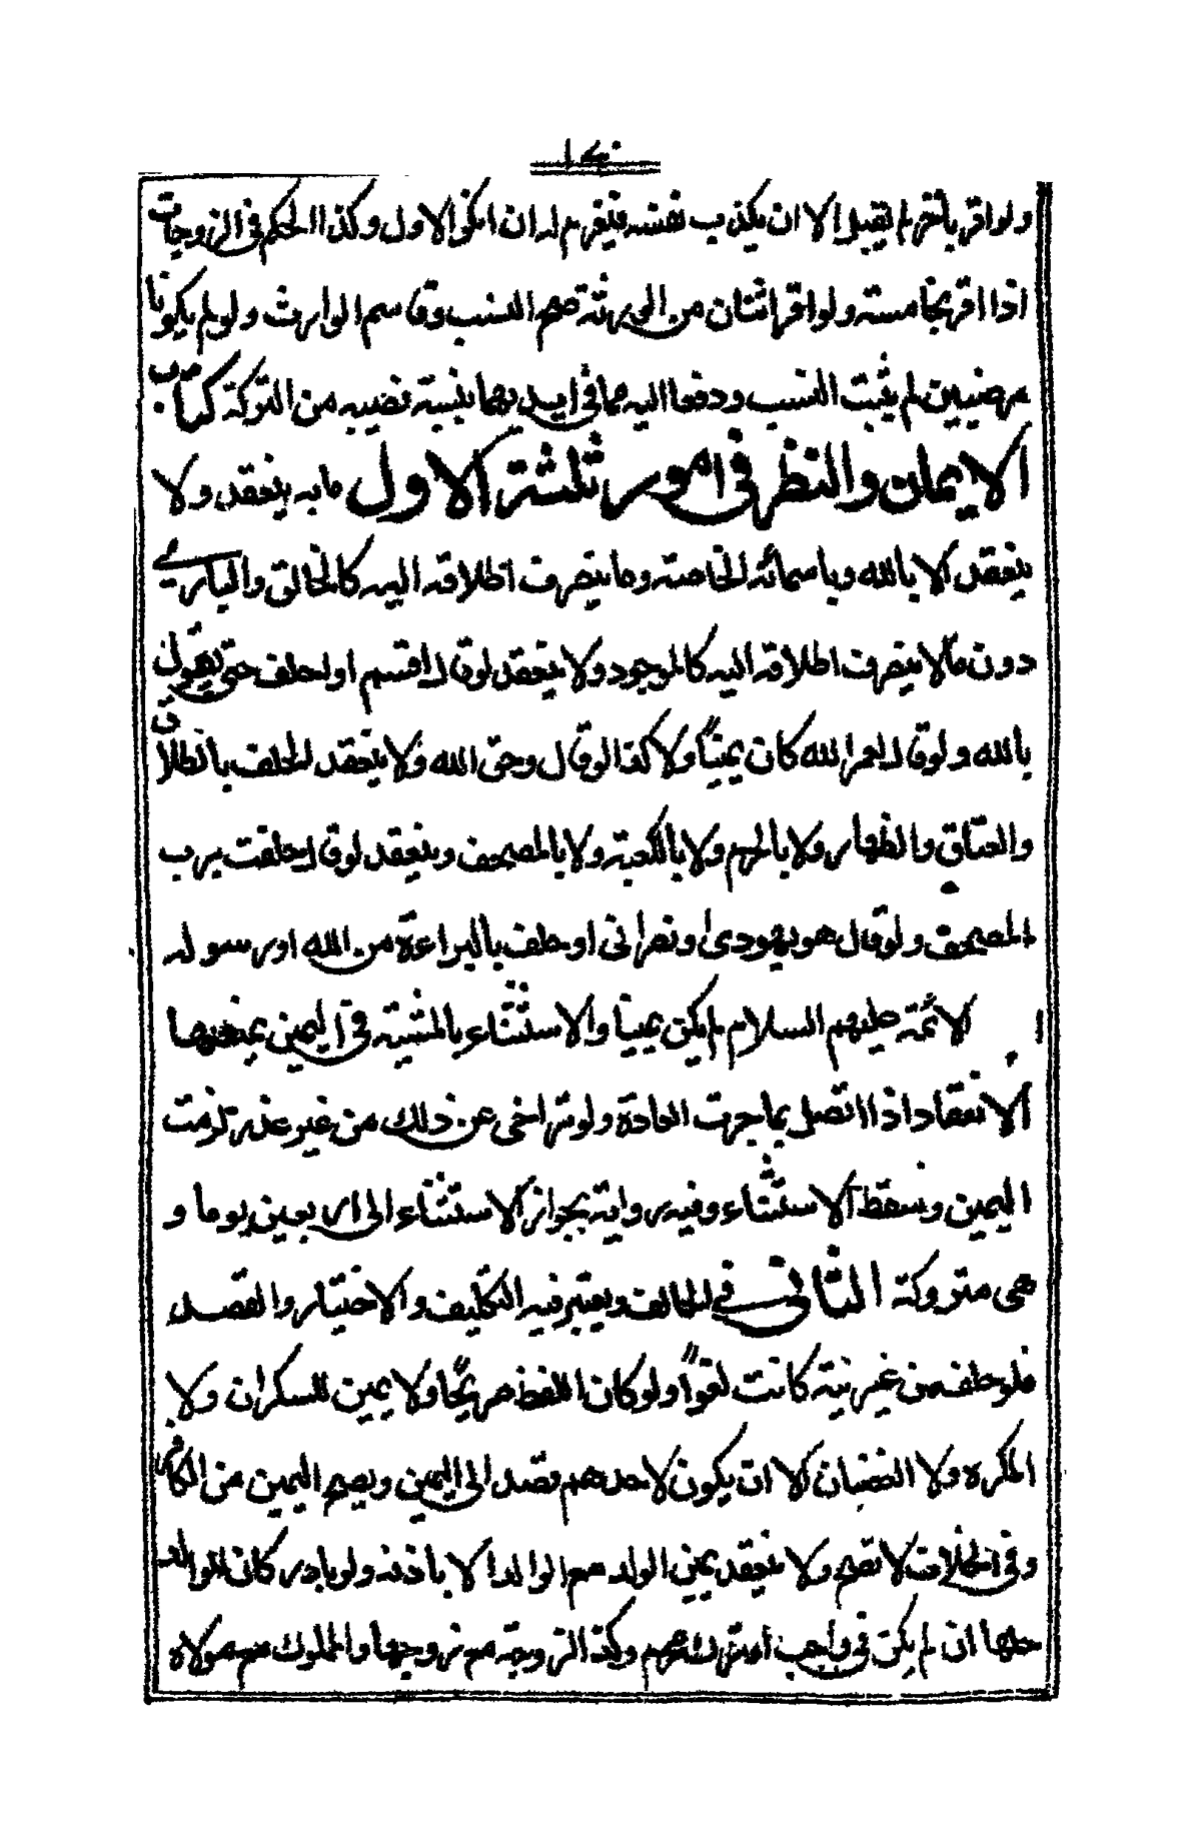 ولو اقر باخر لم يقبل الا ان يكذب نفسه فيغرم له ان انكر الاول وكذا الحكم في الزوجات
اذا اقر بخامسة ولو اقر اثنان من الورثة صح النسب وقاسم الوارث ولو لم يكونا
مرضيين لم يثبت النسب ودفعا اليه مما في ايديهما بنسبة نصيبه من التركة كتاب
الايمان والنظر في امور ثلثة الاول ما به ينعقد ولا
ينعقد الا بالله وباسمائه الخاصة وما ينصرف اطلاقه اليه كالخالق والباري
دون ما لا ينصرف اطلاقه اليه كالموجود ولا ينعقد لو قال اقسم او احلف حتى يقول
بالله ولو قال لعمر الله كان يمينا ولا كذا لو قال وحق الله ولا ينعقد الحلف بالطلاق
والعتاق والظهار ولا بالحرم ولا بالكعبة ولا بالمصحف وينعقد لو قال حلفت برب
المصحف ولو قال هو يهودى او نصرانى او حلف بالبراءة من الله او رسوله
او الائمة عليهم السلام لم يكن يمينا والاستثناء بالمشية في اليمين يمنعها
الانعقاد اذا اتصل بما جرت العادة ولو تراخى عن ذلك من غير عذر لزمت
اليمين وسقط الاستثناء وفيه رواية بجواز الاستثناء الى اربعين يوما و
هى متروكة الثانى في الحالف ويعتبر فيه التكليف والاختيار والقصد
فلو حلف من غير نية كانت لغوا ولو كان اللفظ صريحا ولا يمين للسكران ولا
المكره ولا الغضبان الا ان يكون لاحدهم قصد الى اليمين ويصح اليمين من الكافر
وفي الخلاف لا تصح ولا ينعقد يمين الولد مع الوالد الا باذنه ولو بادر كان للوالد
حلها ان لم يكن في واجب او ترك محرم وكذا الزوجة مع زوجها والمملوك مع مولاه